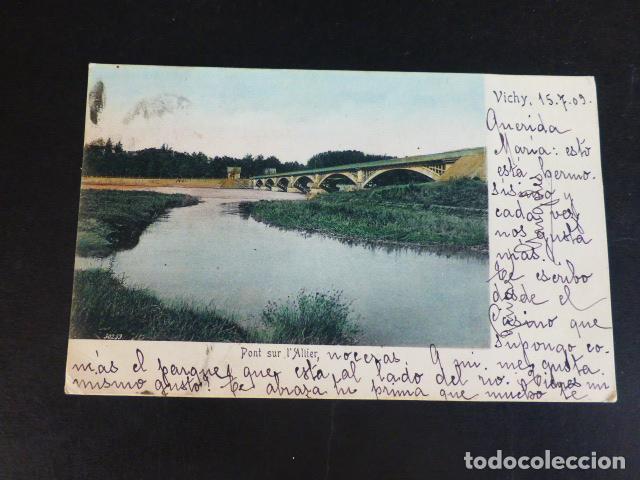 Vichy, 15.7.09.
Querida
María: esto
está germo-
sisimo y
cada vez
nos gusta
más.
Te escribo
desde el
Casino que
supongo co-
noceras. A mi me gusta
más el parque que está al lado del rio. Tienes mi
mismo gusto? Te abraza tu prima que mucho te
Pont sur l'Allier,
30253
todocoleccion.net